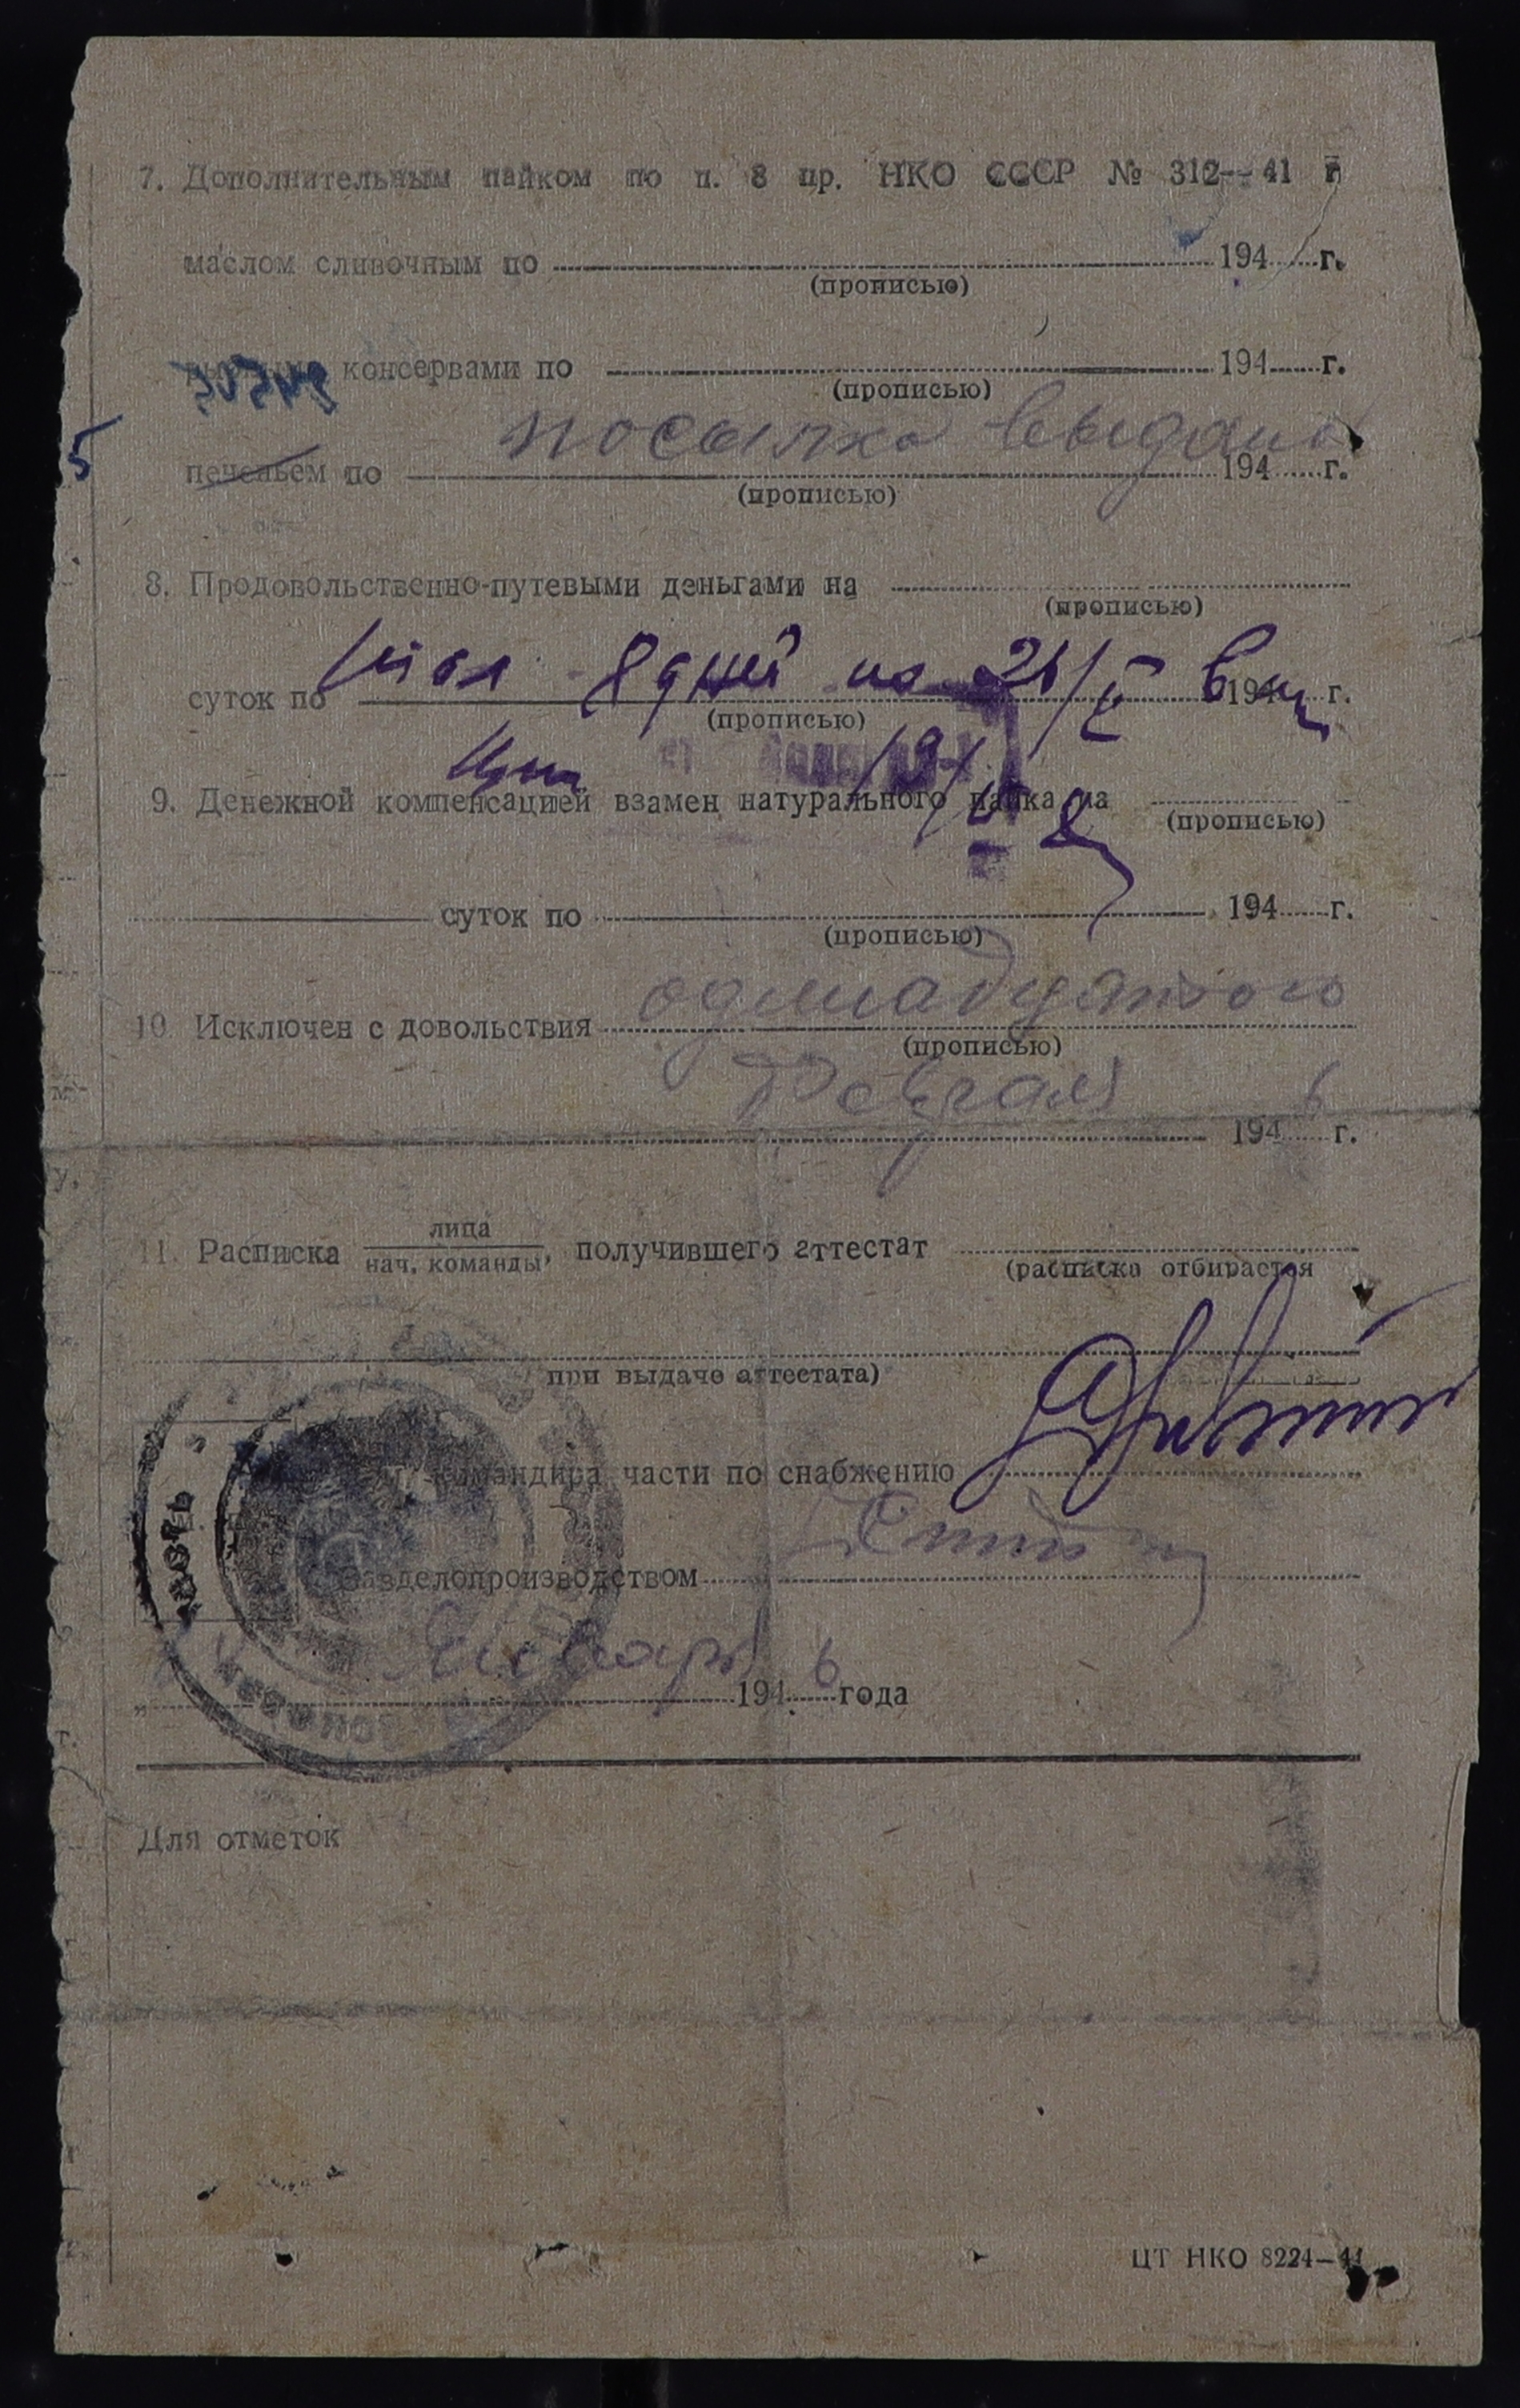 7. Дополнительным пайком по п. 8 пр. НКО СССР № 312--41 г
маслом сливочным по 194 г.
(прописью)
консервами по 194 г.
(прописью)
посылка выдана
5
печеньем по 194 г.
(прописью)
8. Продовольственно-путевыми деньгами на
(прописью)
8 дней на 21/
суток по 194 г.
(прописью)
9. Денежной компенсацией взамен натурального пайка на
(прописью)
суток по 194 г.
(прописью)
одинадцатого
10 Исключен с довольствия
(прописью)
Февраля 6
194 г.
11. Расписка лица
нач. команды, получившего аттестат
(расписка отбирается
при выдаче аттестата)
командира части по снабжению
Завделопроизводством
Январь 6
194 года
Для отметок
ЦТ НКО 8224—41